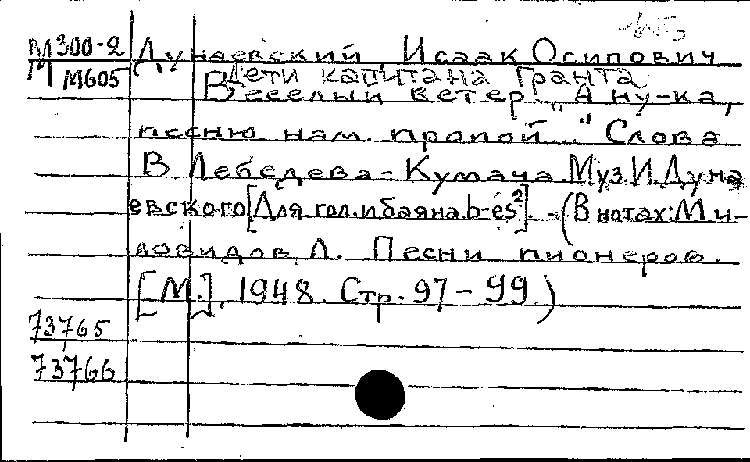 М300-2 Дунаевский, Исаак Осипович
М М605 Дети капитана Гранта
Веселый ветер. „А ну-ка,
песню нам пропой..." Слова
В. Лебедева-Кумача. Муз. И. Дуна
евского [Для гол. и баяна. b-es²] - (В нотах: Ми-
ловидов, Л. Песни пионеров.
[М.], 1948. Стр. 97-99.)
73765
73766